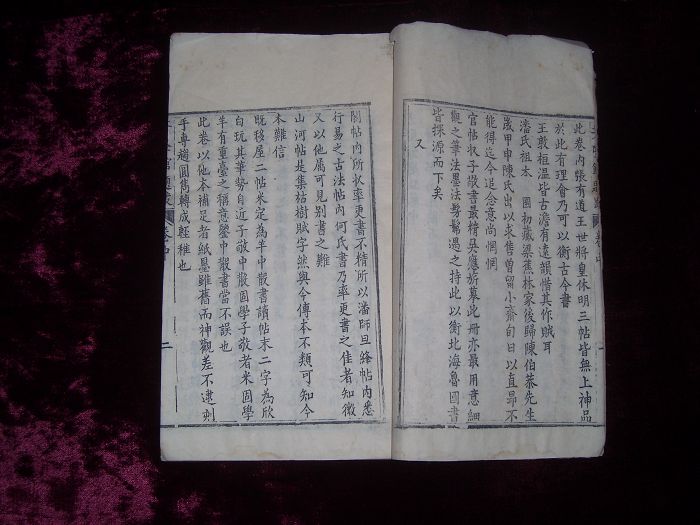 此卷内張有道王世將皇休明三帖皆無上神品
於此有理會乃可以衡古今書
王敦桓温皆古澹有遠韻惜其作賊耳
潘氏祖太 國初藏梁蕉林家後歸陳伯恭先生
歲甲申陳氏出以求售曾留小齋旬日以直昂不
能得迄今追念意尚惘惘
官帖收子敬書最精吳應祈摹此冊亦最用意細
觀之筆法墨法髣髴遇之持此以衡北海魯國書
皆探源而下矣
又
閣帖内所收率更書不精所以潘師旦絳帖内悉
行易之古法帖内何氏書乃率更書之佳者知微
又以他屬可見别書之難
山河帖是集枯樹賦字然與今傳本不類可知今
本難信
既移屋二帖米定為羊中散書讀帖末二字為欣
白玩其筆勢自近子敬中散固學子敬者米固學
羊有重臺之稱意鑒中散書當不誤也
此卷以他本補足者紙墨雖舊而神觀差不逮刻
手專趨圓雋轉成輕稚也
二